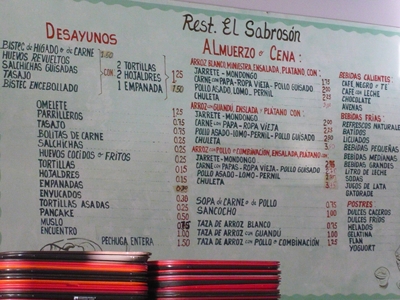 Rest. EL Sabrosón
DESAYUNOS
BISTEC de HIGADO o de CARNE
HUEVOS REVUELTOS
SALCHICHAS GUISADAS
TASAJO
BISTEC ENCEBOLLADO
CON
2 TORTILLAS
2 HOJALDRES
1 EMPANADA
1.25
1.50
OMELETE
PARRILLEROS 1.25
TASAJO 0.75
BOLITAS DE CARNE 0.25
SALCHICHAS 0.25
HUEVOS COCIDOS o FRITOS
TORTILLAS
HOJALDRES
EMPANADAS
ENYUCADOS
TORTILLAS ASADAS 0.25
PANCAKE 0.50
MUSLO 0.75
ENCUENTRO
PECHUGA ENTERA 1.50
ALMUERZO o CENA:
ARROZ BLANCO, MINISTRA, ENSALADA, PLATANO CON:
JARRETE - MONDONGO
CARNE CON PAPA - ROPA VIEJA - POLLO GUISADO
POLLO ASADO - LOMO - PERNIL
CHULETA
ARROZ CON GUANDÚ, ENSALADA y PLATANO CON:
JARRETE - MONDONGO
CARNE CON PAPA - ROPA VIEJA - POLLO GUISADO
POLLO ASADO - LOMO - PERNIL
CHULETA
ARROZ CON POLLO o COMBINACIÓN, ENSALADA, PLATANO CON:
JARRETE - MONDONGO
CARNE CON PAPAS - ROPA VIEJA - POLLO GUISADO
POLLO ASADO - LOMO - PERNIL
CHULETA
SOPA de CARNE o de POLLO
SANCOCHO
TAZA DE ARROZ BLANCO
TAZA DE ARROZ CON GUANDU
TAZA DE ARROZ CON POLLO o COMBINACIÓN 1.50
BEBIDAS CALIENTES:
CAFÉ NEGRO o TÉ
CAFÉ CON LECHE
CHOCOLATE
AVENAS
BEBIDAS FRÍAS:
REFRESCOS NATURALES
BATIDOS
LICUADOS
BEBIDAS PEQUEÑAS
BEBIDAS MEDIANAS
BEBIDAS GRANDES
LITRO DE LECHE
SODAS
JUGOS DE LATA
GATORADE
POSTRES
DULCES CASEROS
DULCES FRÍOS
HELADOS
GELATINA
FLAN
YOGOURT